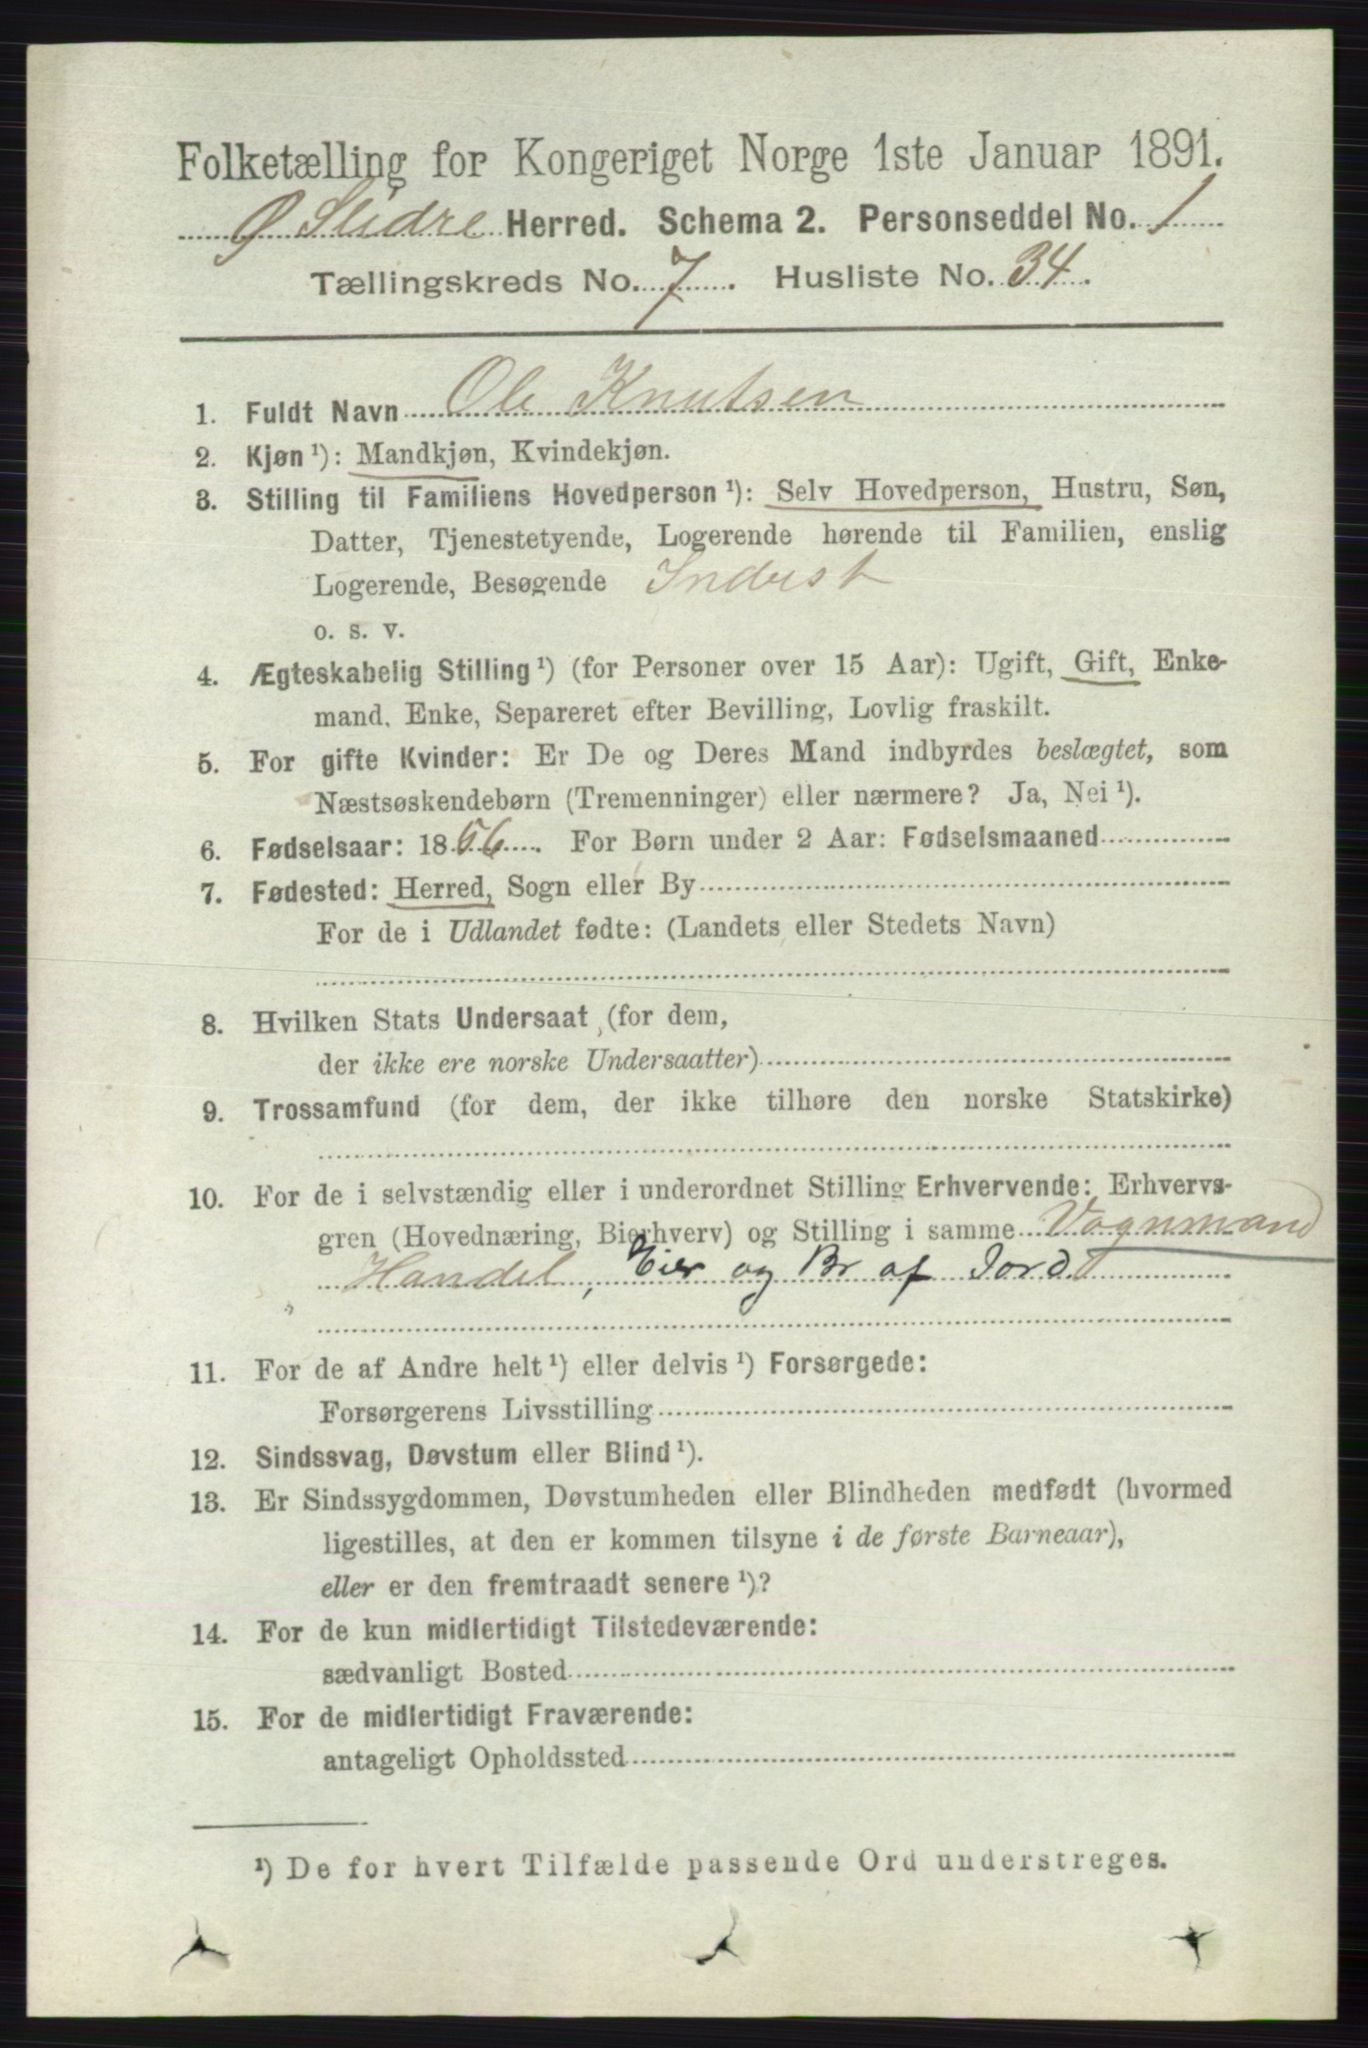 Folketælling for Kongeriget Norge 1ste Januar 1891.
Ø Slidre Herred. Schema 2. Personseddel No. 1
Tællingskreds No. 7. Husliste No. 34.
1. Fuldt Navn Ole Knutsen
2. Kjøn ¹): Mandkjøn, Kvindekjøn.
3. Stilling til Familiens Hovedperson ¹): Selv Hovedperson, Hustru, Søn,
Datter, Tjenestetyende, Logerende hørende til Familien, enslig
Logerende, Besøgende Inderst
o. s. v.
4. Ægteskabelig Stilling ¹) (for Personer over 15 Aar): Ugift, Gift, Enke-
mand, Enke, Separeret efter Bevilling, Lovlig fraskilt.
5. For gifte Kvinder: Er De og Deres Mand indbyrdes beslægtet, som
Næstsøskendebørn (Tremenninger) eller nærmere? Ja, Nei ¹).
6. Fødselsaar: 1856. For Børn under 2 Aar: Fødselsmaaned
7. Fødested: Herred, Sogn eller By
For de i Udlandet fødte: (Landets eller Stedets Navn)
8. Hvilken Stats Undersaat (for dem,
der ikke ere norske Undersaatter)
9. Trossamfund (for dem, der ikke tilhøre den norske Statskirke)
10. For de i selvstændig eller i underordnet Stilling Erhvervende: Erhvervs-
gren (Hovednæring, Bierhverv) og Stilling i samme Vognmand
Handel, Eier og Br af Jord
11. For de af Andre helt ¹) eller delvis ¹) Forsørgede:
Forsørgerens Livsstilling
12. Sindssvag, Døvstum eller Blind ¹).
13. Er Sindssygdommen, Døvstumheden eller Blindheden medfødt (hvormed
ligestilles, at den er kommen tilsyne i de første Barneaar),
eller er den fremtraadt senere ¹)?
14. For de kun midlertidigt Tilstedeværende:
sædvanligt Bosted
15. For de midlertidigt Fraværende:
antageligt Opholdssted
¹) De for hvert Tilfælde passende Ord understreges.